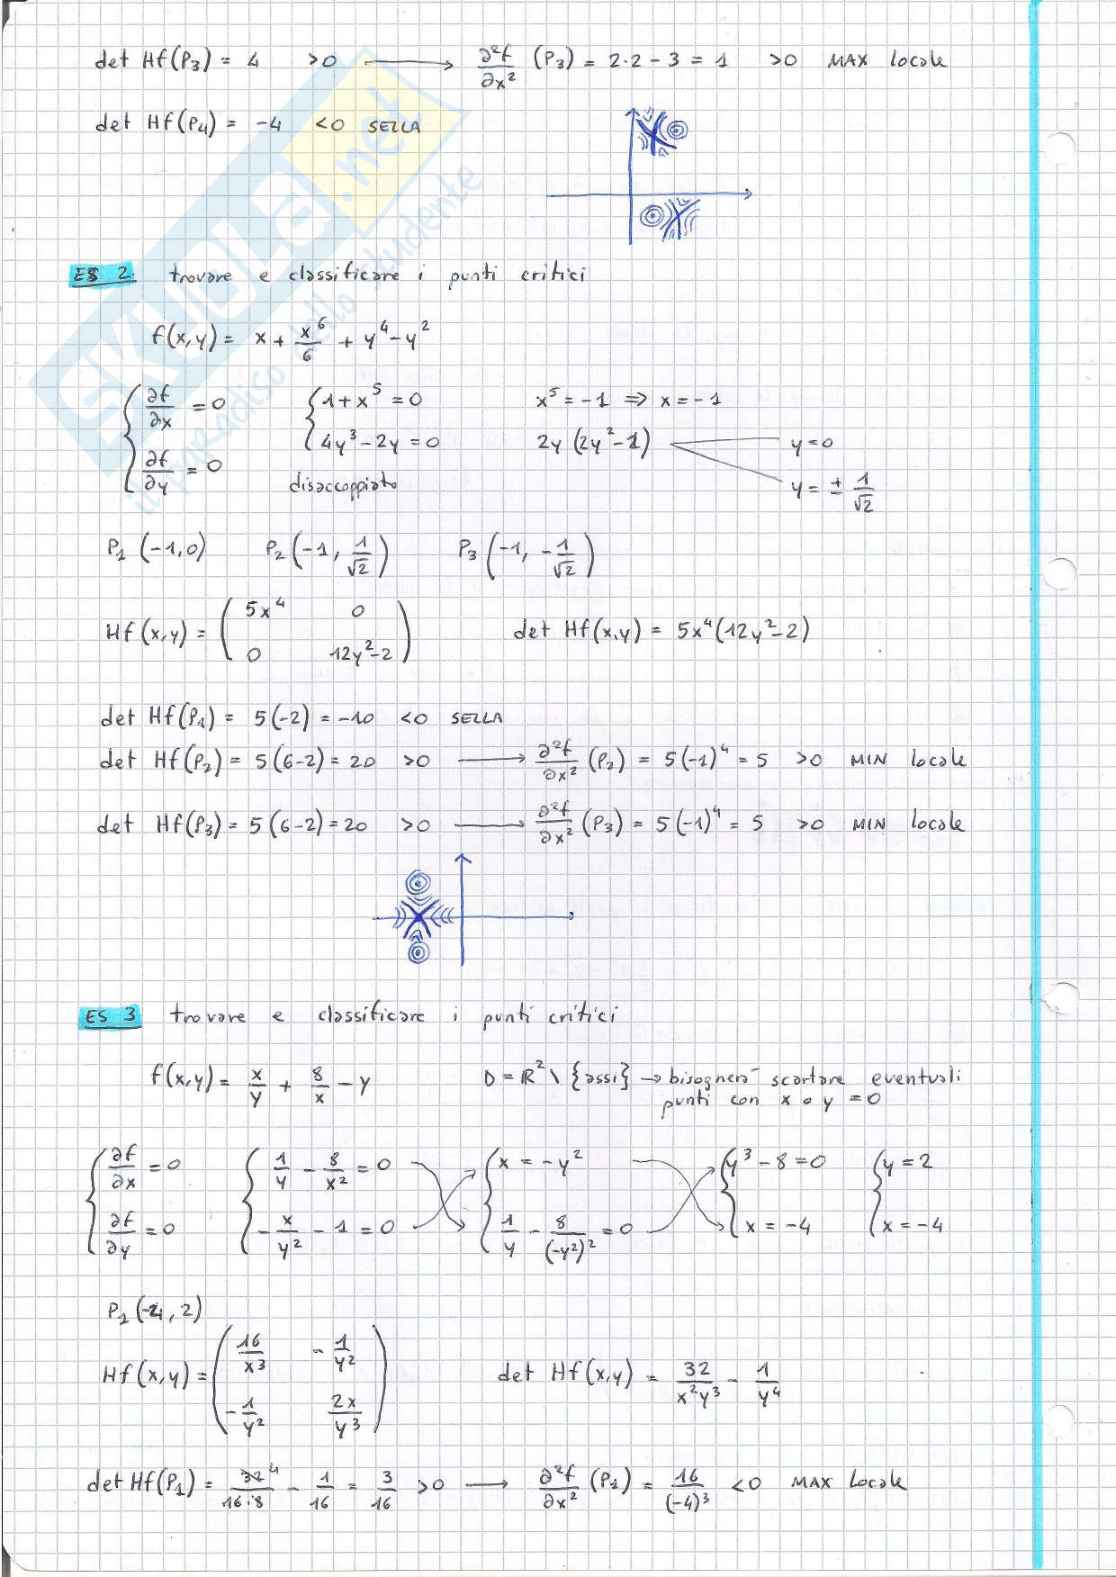 det Hf(P₃) = 4 >0 ⟶ ∂²f/∂x² (P₃) = 2·2 − 3 = 1 >0 MAX locale
det Hf(P₄) = −4 <0 SELLA
SKUOLA.net
il paradiso dello studente
ES 2. trovare e classificare i punti critici
f(x,y) = x + x⁶/6 + y⁴ − y²
{ ∂f/∂x = 0 { 1 + x⁵ = 0 x⁵ = −1 ⇒ x = −1
{ ∂f/∂y = 0 { 4y³ − 2y = 0 2y (2y² − 1) y = 0
disaccoppiato y = ± 1/√2
P₁ (−1,0) P₂ (−1, 1/√2) P₃ (−1, −1/√2)
Hf(x,y) = ( 5x⁴ 0 det Hf(x,y) = 5x⁴(12y²−2)
0 12y²−2 )
det Hf(P₁) = 5(−2) = −10 <0 SELLA
det Hf(P₂) = 5(6−2) = 20 >0 ⟶ ∂²f/∂x² (P₂) = 5(−1)⁴ = 5 >0 MIN locale
det Hf(P₃) = 5(6−2) = 20 >0 ⟶ ∂²f/∂x² (P₃) = 5(−1)⁴ = 5 >0 MIN locale
ES 3 trovare e classificare i punti critici
f(x,y) = x/y + 8/x − y D = ℝ² \ {assi} → bisognerà scartare eventuali
punti con x o y = 0
{ ∂f/∂x = 0 { 1/y − 8/x² = 0 { x = −y² { y³ − 8 = 0 { y = 2
{ ∂f/∂y = 0 { −x/y² − 1 = 0 { 1/y − 8/(−y²)² = 0 { x = −4 { x = −4
P₁ (−4, 2)
Hf(x,y) = ( 16/x³ −1/y² det Hf(x,y) = 32/x²y³ − 1/y⁴
−1/y² 2x/y³ )
det Hf(P₁) = 32⁴/16·8 − 1/16 = 3/16 >0 ⟶ ∂²f/∂x² (P₁) = 16/(−4)³ <0 MAX locale